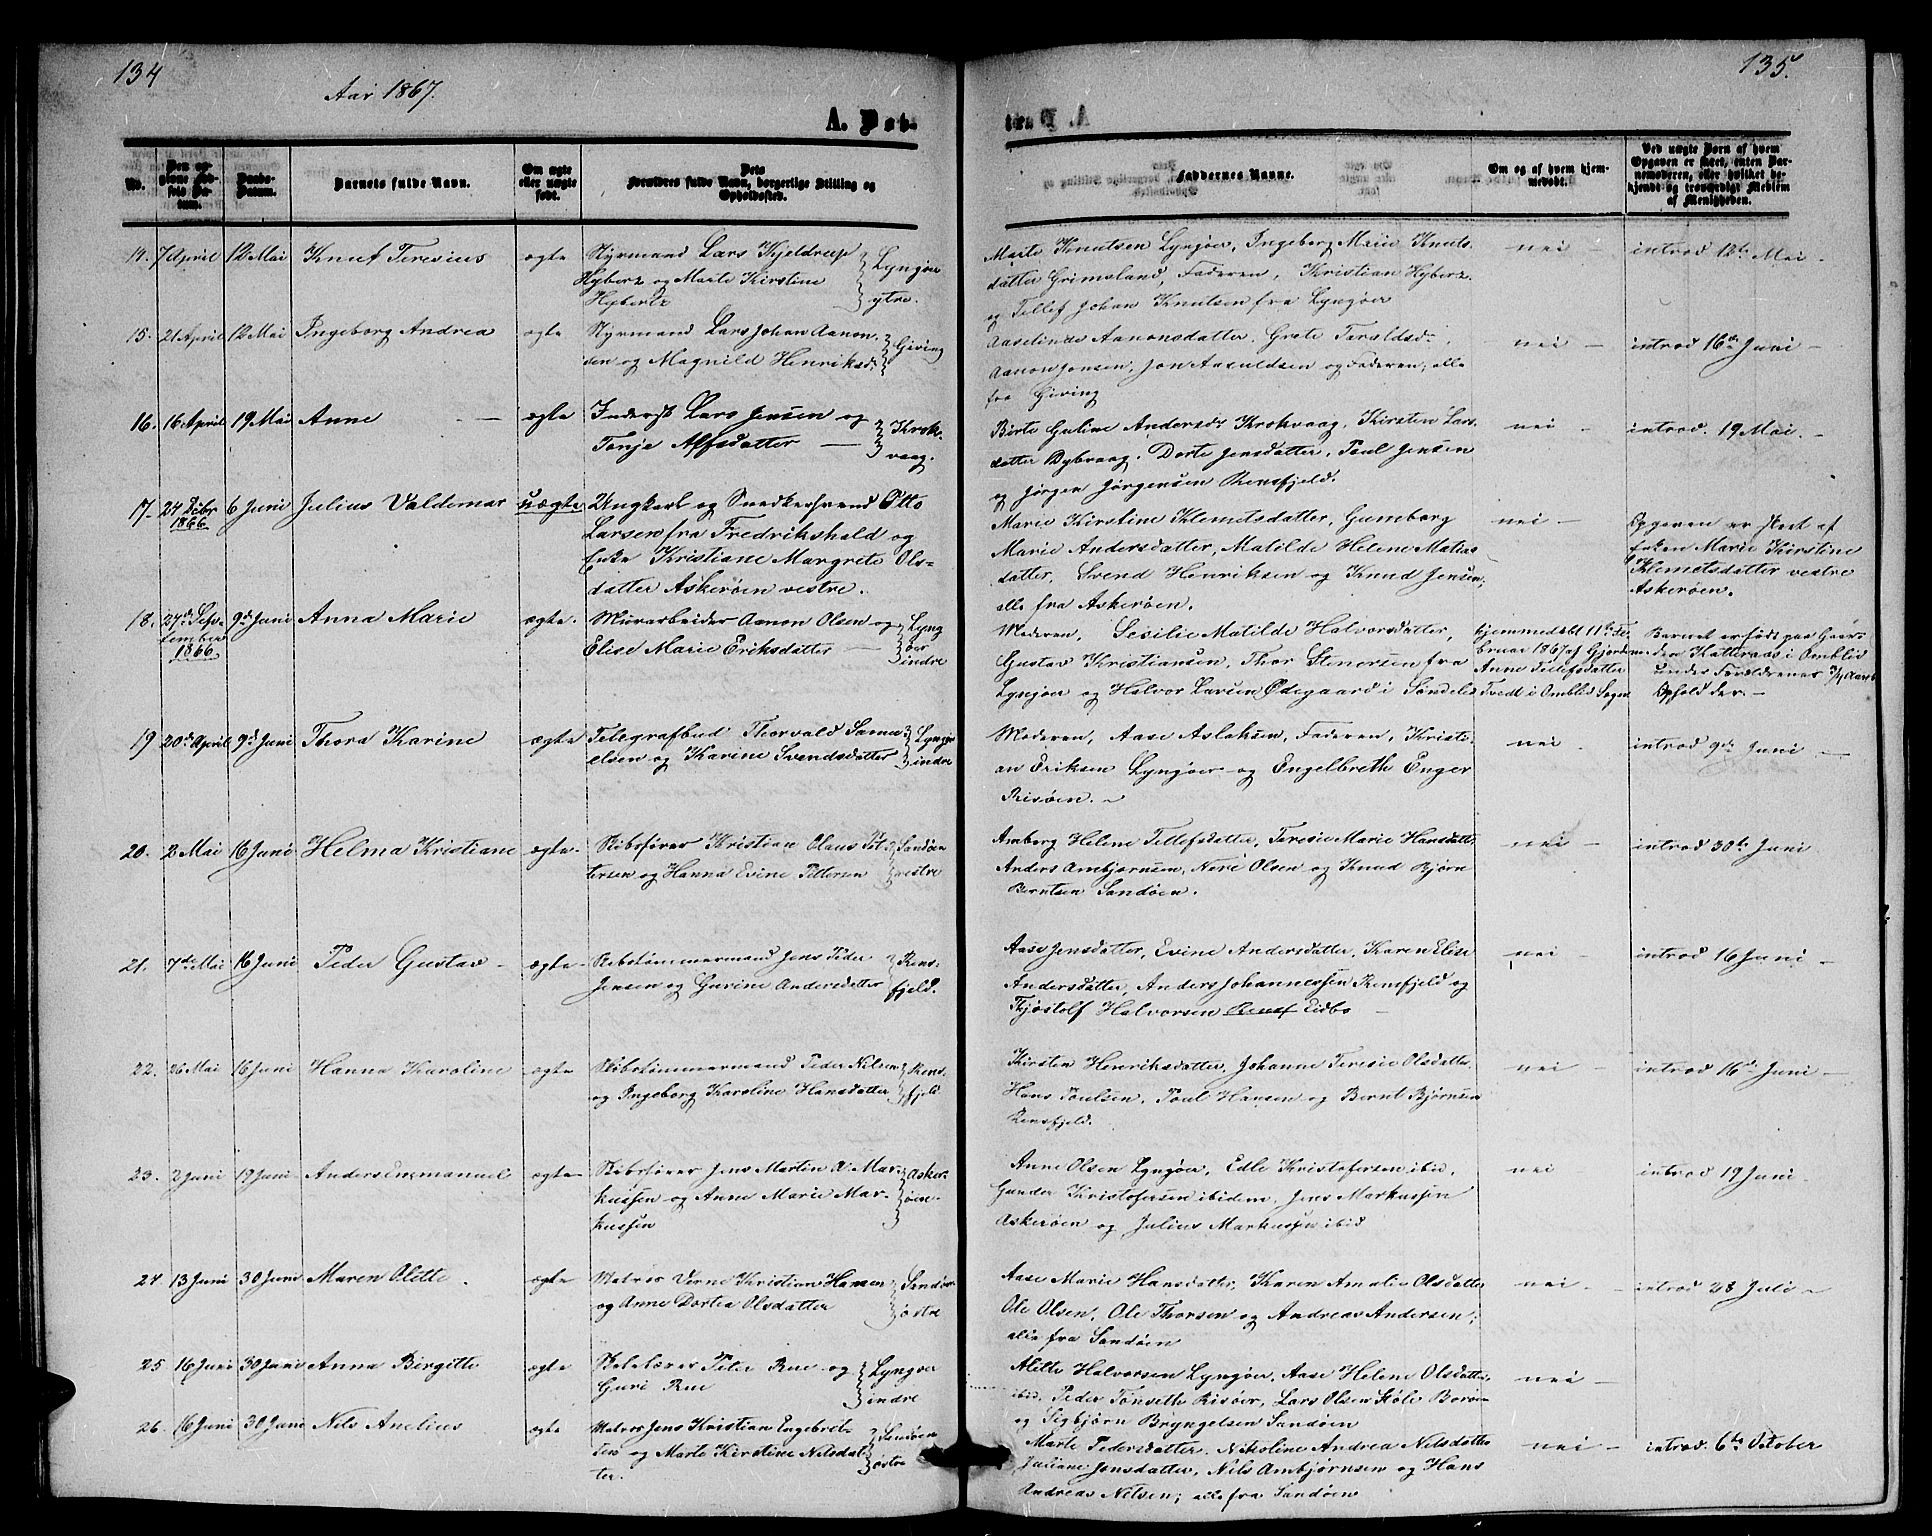 134
Aar 1867.
A. Døb-
No.
Den op-
givne Fød-
sels Da-
tum.
Daabs-
Datum.
Barnets fulde Navn.
Om ægte
eller uægte
født.
Forældres fulde Navn, borgerlige Stilling og
Opholdssted.
14. 7 April 12 Mai Knut Teresius ægte Styrmand Lars Kjeldrup
Hybertz og Marte Kirstine
Hybertz
Lyngøer
ytre.
15. 21 April 12 Mai Ingeborg Andrea ægte Styrmand Lars Johan Aanon-
sen og Magnild Henriksd.
Giving
16. 16 April 19 Mai Anne ægte Inderst Lars Jensen og
Tonje Alfsdatter
Krok-
vaag.
17. 24 Debr 1866. 6 Juni Julius Valdemar uægte Ungkarl og Snedkersvend Otto
Larsen fra Fredrikshald og
Enke Kristiane Margrete Ols-
datter Askerøen vestre.
18. 27de Sep-
tember
1866. 9de Juni Anna Marie ægte. Murarbeider Aanon Olsen og
Elise Marie Eriksdatter
Lyng
øer
indre
19 20de April 9de Juni Thora Karine ægte Telegrafbud Thorvald Samu-
elsen og Karine Svendsdatter
Lyngør
indre
20. 2 Mai 16 Juni Helma Kristiane ægte. Skibsfører Kristian Olaus Pet-
tersen og Hanna Evine Pettersen
Sandøen
vestre
21. 7de Mai 16 Juni Peder Gustav ægte Skibstømmermand Jens Peder
Jensen og Gurine Andersdatter
Rens-
fjeld.
22. 26 Mai 16 Juni Hanna Karoline ægte Skibstømmermand Peder Nilsen
og Ingeborg Karoline Hansdatter
Rens-
fjeld
23. 2 Juni 19 Juni Anders Emmanuel ægte Skibsfører Jens Martin A Mar-
kussen og Anne Marie Mar-
kussen
Asker-
øen
24 13 Juni 30 Juni Maren Olette. ægte Matros Verne Kristian Hansen
og Anne Dortea Olsdatter
Sandøen
østre
25 16 Juni 30 Juni Anna Birgitte ægte Skolelærer Peder Rue og
Guri Rue
Lyngøer
indre
26. 16 Juni 30 Juni Nils Anelius ægte Matros Jens Kristian Engebret-
sen og Marte Kirstine Nilsdat-
ter.
Sandøen
østre
135.
Faddernes Navne.
Om og af hvem hjem-
medøbt.
Ved uægte Børn af hvem
Opgaven er skeet, enten Bar-
nemoderen, eller hvilket be-
kjendt og troværdigt Medlem
af Menigheden.
Marte Knutsen Lyngøer, Ingeborg Marie Knuts-
datter Grimsland, Faderen, Kristian Hybertz
og Tellef Johan Knutsen fra Lyngøer
nei introd 12te Mai
Aaseline Aanonsdatter, Grete Taraldsd.,
Aanon Jensen, Jon Aasuldsen og Faderen; alle
fra Giving
nei introd 16de Juni
Birte Guline Andersdr Krokvaag, Kirsten Lars-
datter Dybvaag, Dorte Jensdatter, Poul Jensen
og Jørgen Jørgensen Rensfjeld.
nei introd. 19 Mai.
Marie Kirstine Klemetsdatter, Gumborg
Marie Andersdatter, Matilde Helene Matias
datter, Svend Henriksen og Knud Jensen;
alle fra Askerøen.
nei Opgaven er skeet af
Enken Marie Kirstine
Klemetsdatter vestre
Askerøen.
Moderen, Sesilie Matilde Halvorsdatter,
Gustav Kristiansen, Thor Stenersen fra
Lyngøer og Halvor Larsen Ødegaard i Søndeled
hjemmedøbt 11te Fe-
bruar 1867 af Gjordem.
Anne Tellefsdatter
Tvedt i Omblid Sogn
Barnet er født paa Gaar-
den Katteraas i Omblid
under Forældrenes
Ophold der.
Moderen, Aase Aslaksen, Faderen, Kristi-
an Eriksen Lyngøer og Engelbreth Enger
Risøen.
nei introd 9de Juni
Amberg Helene Tellefsdatter, Teresie Marie Hansdatt.
Anders Ambjørnsen, Neri Olsen og Knud Bjørn
Berntsen Sandøen.
nei introd 30te Juni
Aase Jensdatter, Evine Andersdatter, Karen Elise
Andersdatter, Anders Johannessen Rensfjeld og
Thjøstolf Halvorsen Rensf Eidbo
nei introd 16 Juni
Kirsten Henriksdatter, Johanne Teresie Olsdatter
Hans Poulsen, Poul Hansen og Bernt Bjørnsen
Rensfjeld.
nei introd 16de Juni
Anne Olsen Lyngøer, Edle Kristofersen ibid,
Gunder Kristofersen ibidem, Jens Markussen
Askerøen og Julius Markussen ibid
nei introd 19 Juni
Aase Marie Hansdatter, Karen Amalie Olsdatter
Ole Olsen, Ole Thorsen og Andreas Andersen;
alle fra Sandøen
nei introd 28 Juli
Alette Halvorsen Lyngøer, Aase Helene Olsdatter
ibid, Peder Tønseth Risøer, Lars Olsen Hole Borøen
og Sigbjørn Bryngelsen Sandøen
nei
Marte Pedersdatter, Nikoline Andrea Nilsdatter
Juliane Jensdatter, Nils Ambjørnsen og Hans
Andreas Nilsen; alle fra Sandøen
nei introd. 6te October